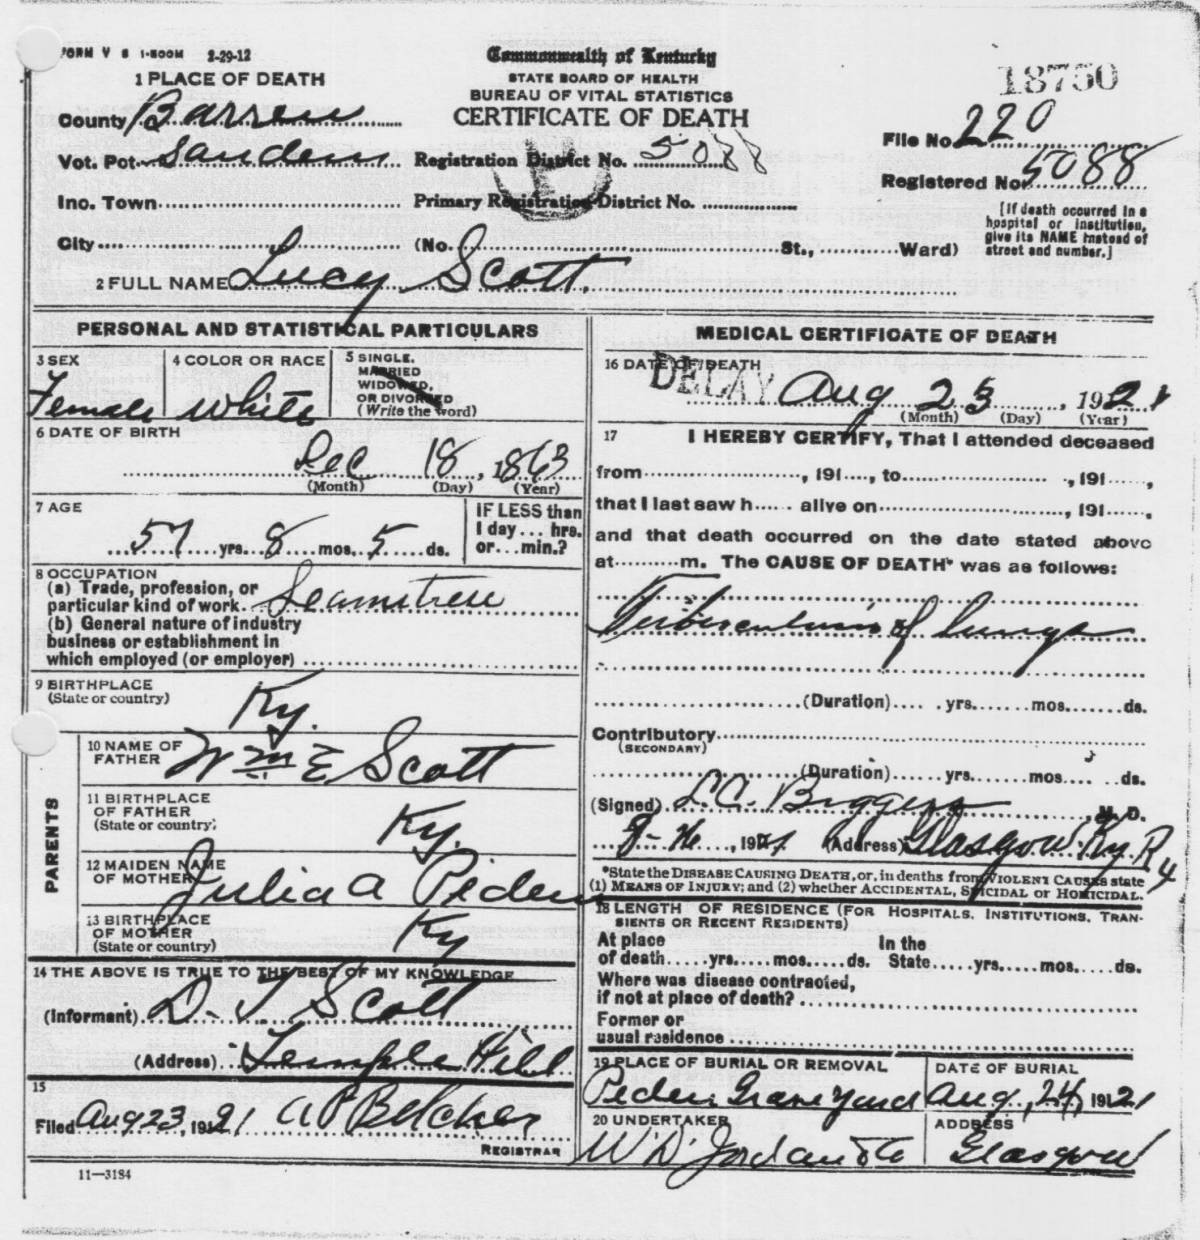 FORM V S 1-500M 2-29-12
Commonwealth of Kentucky
STATE BOARD OF HEALTH
BUREAU OF VITAL STATISTICS
CERTIFICATE OF DEATH
18750
1 PLACE OF DEATH
County Barren
File No. 220
Vot. Pct. Registration District No. 5088
Registered No. 5088
Inc. Town Primary Registration District No.
[If death occurred in a hospital or institution, give its NAME instead of street and number.]
City (No. St., Ward)
2 FULL NAME Lucy Scott.
PERSONAL AND STATISTICAL PARTICULARS
3 SEX
Female
4 COLOR OR RACE
White
5 SINGLE,
MARRIED
WIDOWED,
OR DIVORCED
(Write the word)
6 DATE OF BIRTH
Dec 18, 1863
(Month) (Day) (Year)
7 AGE
57 yrs. 8 mos. 5 ds.
IF LESS than
1 day ... hrs.
or ... min.?
8 OCCUPATION
(a) Trade, profession, or
particular kind of work. Seamstress
(b) General nature of industry
business or establishment in
which employed (or employer)
9 BIRTHPLACE
(State or country)
Ky.
PARENTS
10 NAME OF
FATHER
Wm E Scott
11 BIRTHPLACE
OF FATHER
(State or country)
Ky.
12 MAIDEN NAME
OF MOTHER
Julia A Peden
13 BIRTHPLACE
OF MOTHER
(State or country)
Ky
14 THE ABOVE IS TRUE TO THE BEST OF MY KNOWLEDGE
(Informant) D. T Scott
(Address) Temple Hill
15
Filed Aug 23, 1921 A P Belcher
REGISTRAR
11—3184
MEDICAL CERTIFICATE OF DEATH
16 DATE OF DEATH
DELAY
Aug 23, 1921
(Month) (Day) (Year)
17 I HEREBY CERTIFY, That I attended deceased
from , 191 , to , 191 ,
that I last saw h alive on , 191 ,
and that death occurred on the date stated above
at m. The CAUSE OF DEATH* was as follows:
Tuberculosis of lungs
(Duration) yrs. mos. ds.
Contributory
(SECONDARY)
(Duration) yrs. mos. ds.
(Signed) L.C. Biggers, M. D.
, 1921 (Address) Glasgow Ky R 4
*State the DISEASE CAUSING DEATH, or, in deaths from VIOLENT CAUSES state
(1) MEANS OF INJURY; and (2) whether ACCIDENTAL, SUICIDAL or HOMICIDAL.
18 LENGTH OF RESIDENCE (FOR HOSPITALS, INSTITUTIONS, TRAN-
SIENTS OR RECENT RESIDENTS)
At place In the
of death yrs. mos. ds. State yrs. mos. ds.
Where was disease contracted,
if not at place of death?
Former or
usual residence
19 PLACE OF BURIAL OR REMOVAL
Peden Grave Yard
DATE OF BURIAL
Aug, 24, 1921
20 UNDERTAKER
W. D. Jordan & Co
ADDRESS
Glasgow